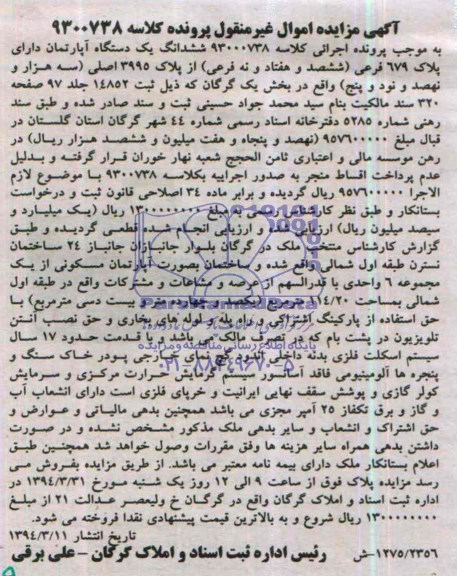 آگهی مزایده اموال غیرمنقول پرونده کلاسه ۹۳۰۰۷۳۸
به موجب پرونده اجرائی کلاسه ۹۳۰۰۰۷۳۸ ششدانگ یک دستگاه آپارتمان دارای
پلاک ۶۷۹ فرعی (ششصد و هفتاد و نه فرعی) از پلاک ۳۹۹۵ اصلی (سه هزار و
نهصد و نود و پنج) واقع در بخش یک گرگان که ذیل ثبت ۱۴۸۵۲ جلد ۹۷ صفحه
۳۲۰ سند مالکیت بنام سید محمد جواد حسینی ثبت و سند صادر شده و طبق سند
رهنی شماره ۵۲۸۵ دفترخانه اسناد رسمی شماره ۴۴ شهر گرگان استان گلستان در
قبال مبلغ ۹۵۷۶۰۰۰۰۰ (نهصد و پنجاه و هفت میلیون و ششصد هزار ریال) در
رهن موسسه مالی و اعتباری ثامن الحجج شعبه نهار خوران قرار گرفته و بدلیل
عدم پرداخت اقساط منجر به صدور اجراییه بکلاسه ۹۳۰۰۷۳۸ با موضوع لازم
الاجرا ۹۵۷۶۰۰۰۰۰ ریال گردیده و برابر ماده ۳۴ اصلاحی قانون ثبت و درخواست
بستانکار و طبق نظر کارشناس رسمی به مبلغ ۱۳۰۰۰۰۰۰۰۰ ریال (یک میلیارد و
سیصد میلیون ریال) ارزیابی شده و ارزیابی انجام شده قطعی گردیده و طبق
گزارش کارشناس منتخب ملک در گرگان بلوار جانبازان جانباز ۲۴ ساختمان
نسترن طبقه اول شمالی واقع شده و ساختمان بصورت آپارتمان مسکونی از یک
مجموعه ۶ واحدی با قدرالسهم از عرصه و مشاعات و مشترکات واقع در طبقه اول
شمالی بمساحت ۱۱۴/۲۰ مترمربع (یکصد و چهارده متر و بیست دسی مترمربع) با
حق استفاده از پارکینگ اشتراکی و راه پله و لوله های بخاری و حق نصب آنتن
تلویزیون در پشت بام که در تصرف مالک می باشد. بنا قدمت حدود ۱۷ سال
سیستم اسکلت فلزی بدنه داخلی اندود گچ نمای خارجی پودر خاک سنگ و
پنجره ها آلومینیومی فاقد آسانسور سیستم گرمایش حرارت مرکزی و سرمایش
کولر گازی و پوشش سقف نهایی ایرانیت و خرپای فلزی است دارای انشعاب آب
و گاز و برق تکفاز ۲۵ آمپر مجزی می باشد همچنین بدهی مالیاتی و عوارض و
حق اشتراک و انشعاب و سایر بدهی ملک مذکور مشخص نشده و در صورت
داشتن بدهی همراه سایر هزینه ها وفق مقررات وصول خواهد شد همچنین طبق
اعلام بستانکار ملک دارای بیمه نامه معتبر می باشد. از طریق مزایده بفروش می
رسد مزایده پلاک فوق از ساعت ۹ الی ۱۲ روز یک شنبه مورخ ۱۳۹۴/۳/۳۱ در
اداره ثبت اسناد و املاک گرگان واقع در گرگان خ ولیعصر عدالت ۲۱ از مبلغ
۱۳۰۰۰۰۰۰۰۰ ریال شروع و به بالاترین قیمت پیشنهادی نقدا فروخته می شود.
تاریخ انتشار ۱۳۹۴/۳/۱۱
۱۲۷۵/۲۳۵۶-ش رئیس اداره ثبت اسناد و املاک گرگان - علی برقی
پایگاه اطلاع رسانی مناقصه و مزایده
۰۲۱-۸۸۳۴۹۶۷۰-۵